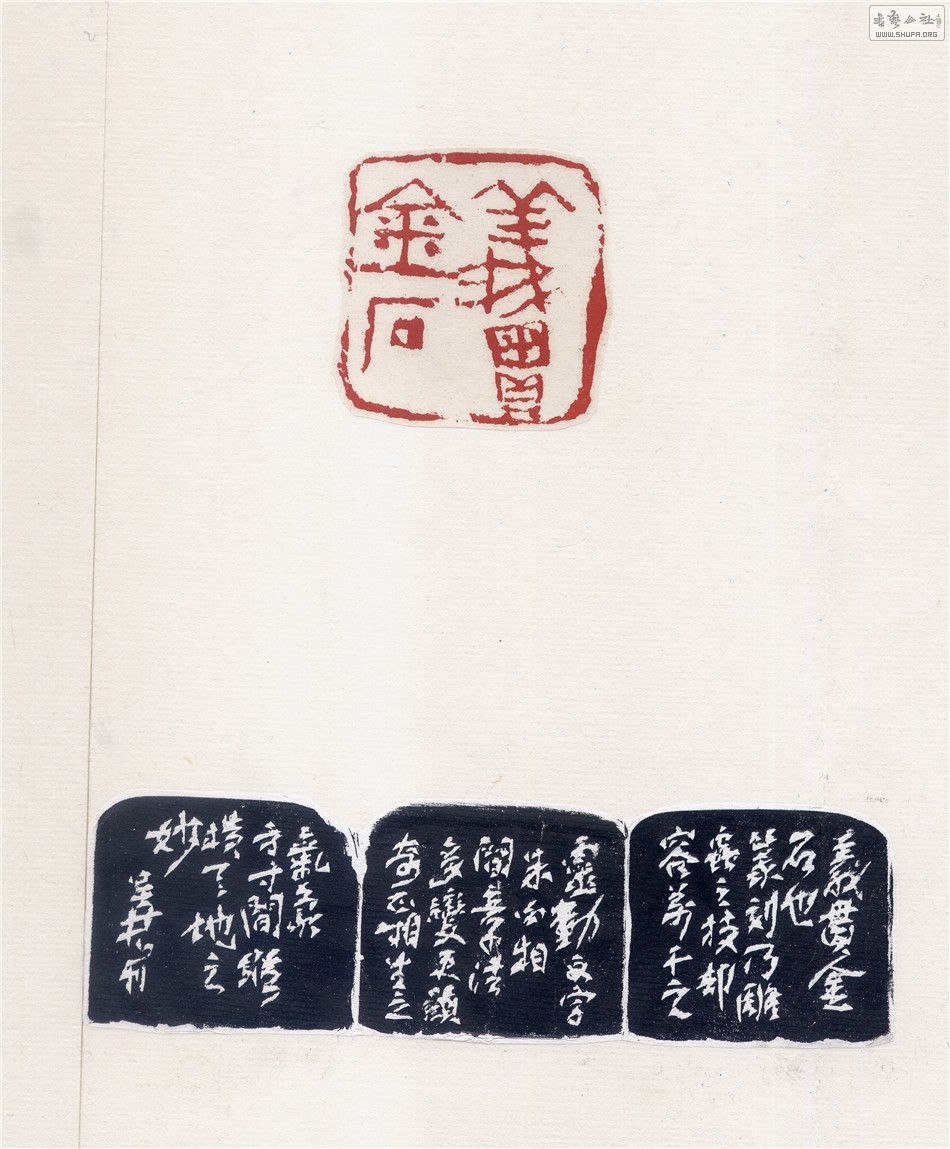 書藝公社
WWW.SHUFA.ORG
義貫
金石
義貫金
石也
篆刻乃雕
之技却
容万千之
靈動文字
朱白相
間無不法
變更顯
奇正相生之
氣
方寸間縱
橫天地之
妙